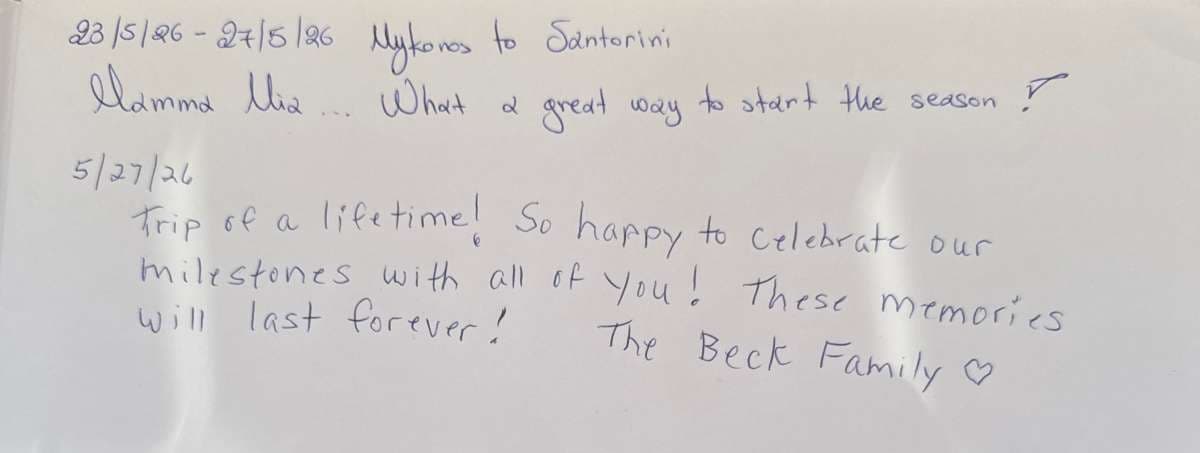 23/5/26 - 27/5/26 Mykonos to Santorini
Mamma Mia ... What a great way to start the season !
5/27/26
Trip of a lifetime! So happy to celebrate our
milestones with all of you! These memories
will last forever! The Beck Family ♡